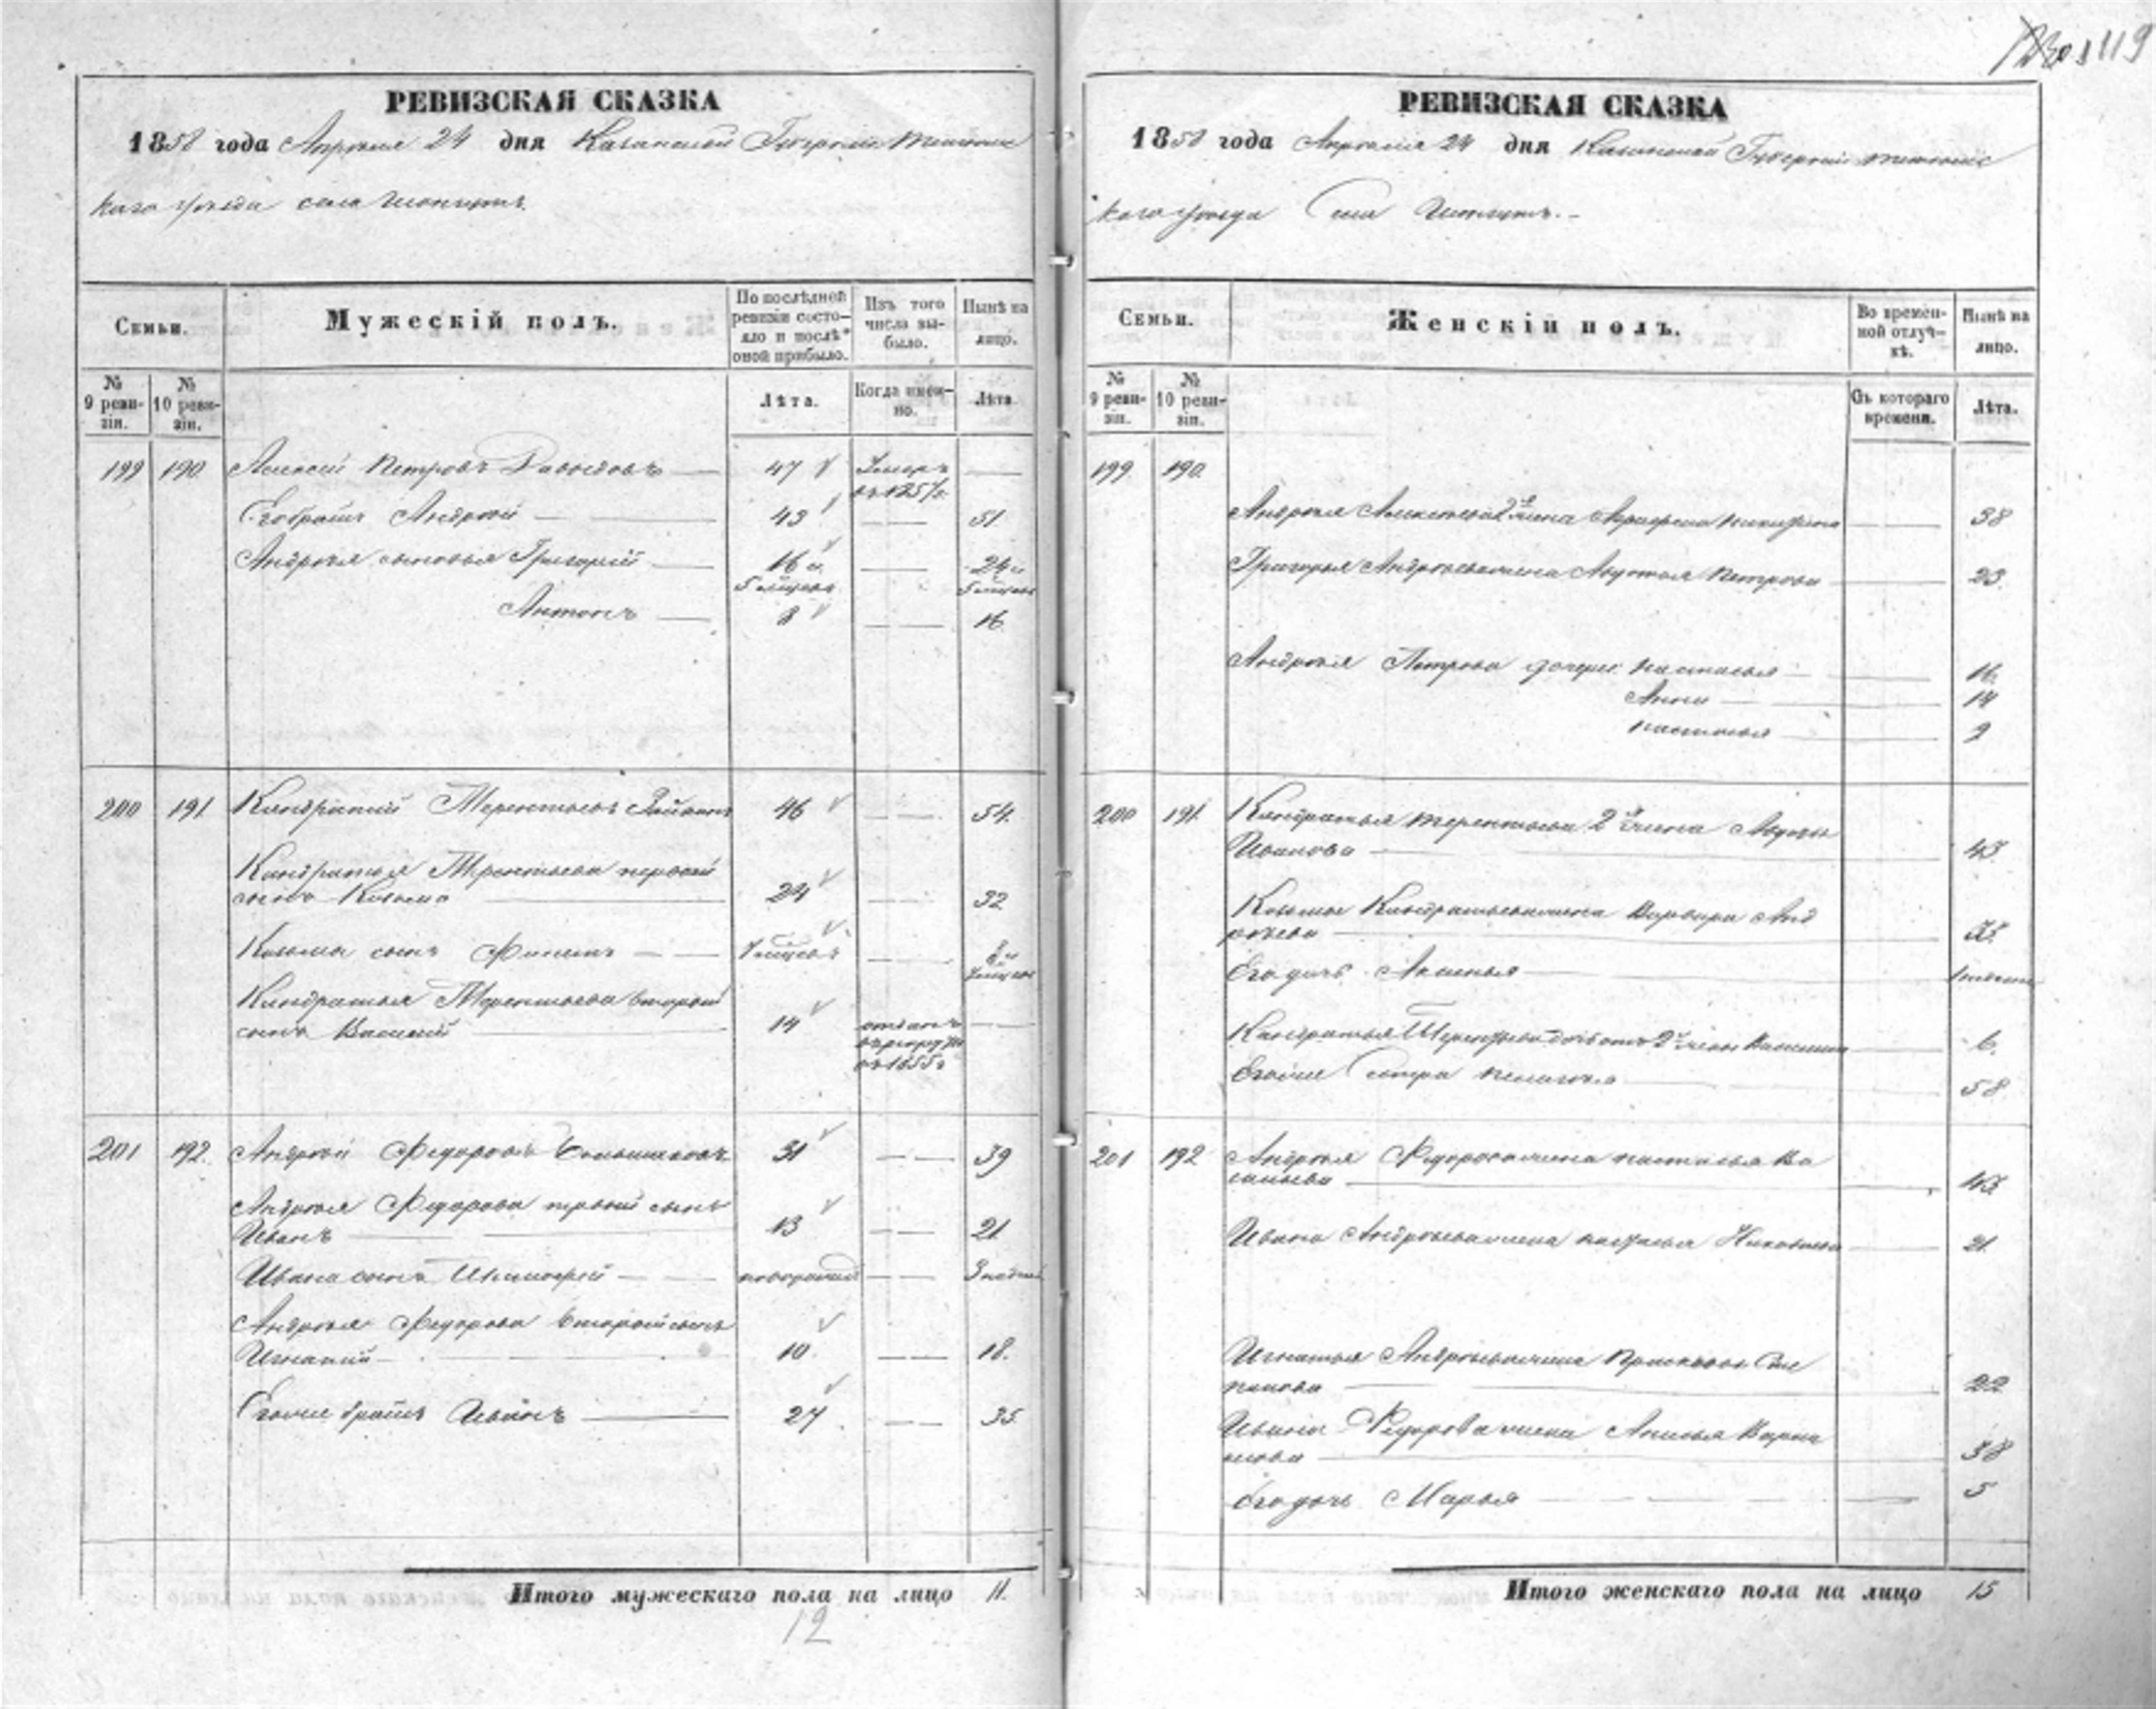 119
РЕВИЗСКАЯ СКАЗКА
1858 года Апреля 24 дня Казанской Губернии Тетюшс
каго уезда села
Семьи.
Мужескій полъ.
По послѣдней ревизіи состо-
яло и послѣ
оной прибыло.
Изъ того
числа вы-
было.
Нынѣ на
лицо.
№
9 реви-
зіи.
№
10 реви-
зіи.
Лѣта.
Когда имен-
но.
Лѣта
199 190 Алексей Петровъ Давыдовъ 47 Умеръ
въ 1857г.
Его братъ Андрей 43 51
Андрея сыновья Григорий 16 и 24 и
5 месецъ 5 месецъ
Антонъ 8 16
200 191 Кандратий Терентьевъ 46 54.
Кандратья Терентьева первый
сынъ Козьма 24 32
Козьмы сынъ Филипъ 7 месецъ 8 и
7 месецъ
Кандратья Терентьева второй
сынъ Василий 14 отданъ
въ рекруты
въ 1855г
201 192. Андрей Федоровъ 31 39
Андрея Федорова первый сынъ
Иванъ 13 21
Ивана сынъ новорожд 3 недели
Андрея Федорова второй сынъ
Игнатий 10 18.
Егоже братъ Иванъ 27 35
Итого мужескаго пола на лицо 11.
12
РЕВИЗСКАЯ СКАЗКА
1858 года Апреля 24 дня Казанской Губернии Тетюшс
каго уезда Села
Семьи.
Женскій полъ.
Во времен-
ной отлуч-
кѣ.
Нынѣ на
лицо.
№
9 реви-
зіи.
№
10 реви-
зіи.
Съ котораго
времени.
Лѣта.
199. 190.
Андрея Алексеева 2я жена Аграфена Никифорова 38
Григорья Андреева жена Авдотья Петрова 23.
Андрея Петрова дочери Настасья 16.
Анна 14
Настасья 2
200 191. Кандратья Терентьева 2я жена Авдотья
Иванова 43.
Козьмы Кандратьева жена Варвара Анд
реева
Его дочь Аксинья
Кандратья Терентьева дочь отъ 2й жены 6.
Егоже сестра Пелагея 58
201 192 Андрея Федорова жена Настасья Ва
сильева 43.
Ивана Андреева жена Наталья 21.
Игнатья Андреева жена Прасковья Сте
панова 22
Ивана Федорова жена Анисья
38
Его дочь Марья 5
Итого женскаго пола на лицо 15